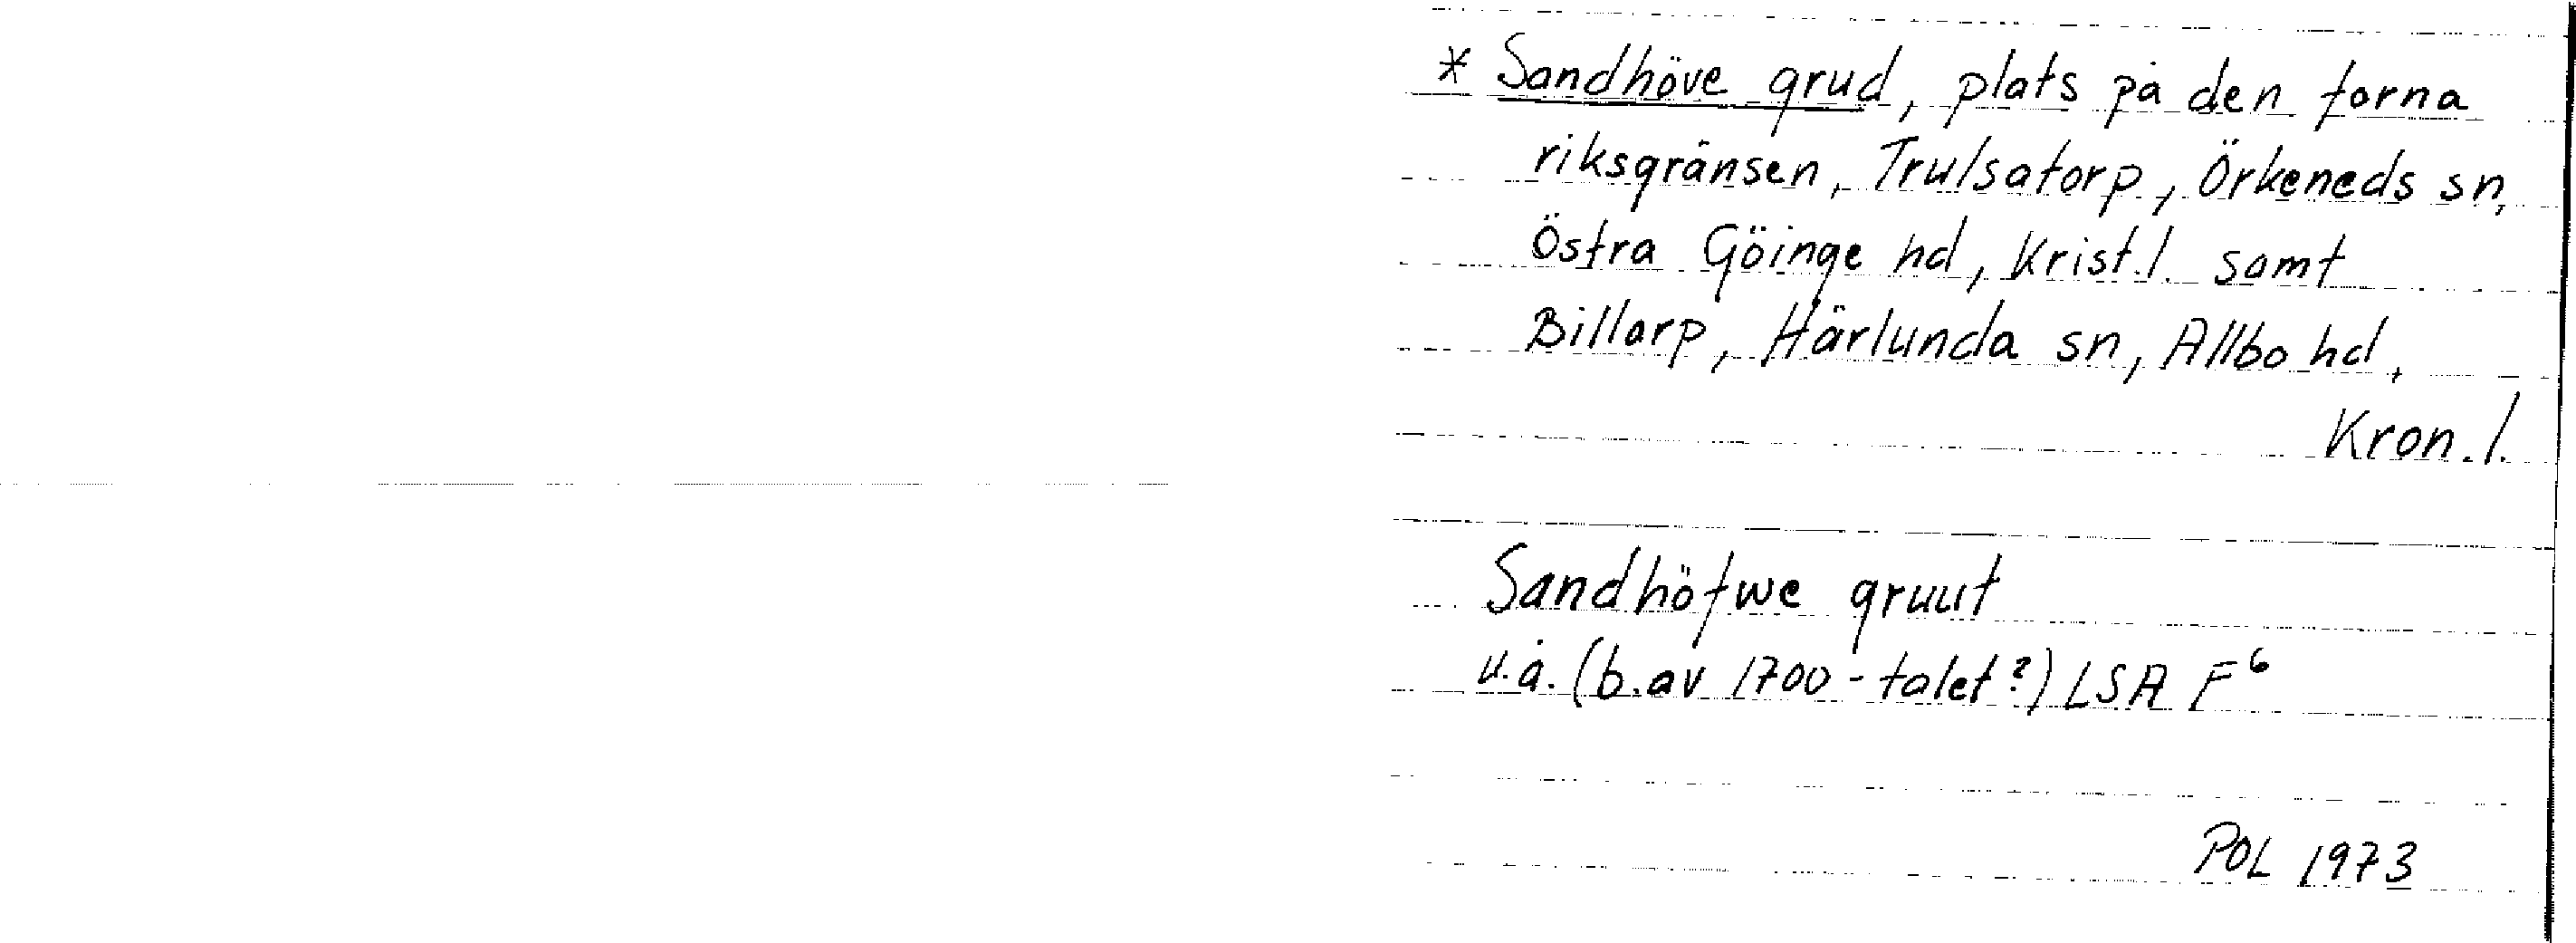 * Sandhöve grud, plats på den forna
riksgränsen, Trulsatorp, Örkeneds sn,
Östra Göinge hd, Krist.l. samt
Billarp, Härlunda sn, Allbo hd,
Kron.l.
Sandhöfwe gruut
u.å. (b.av 1700-talet?) LSA F⁶
POL 1973